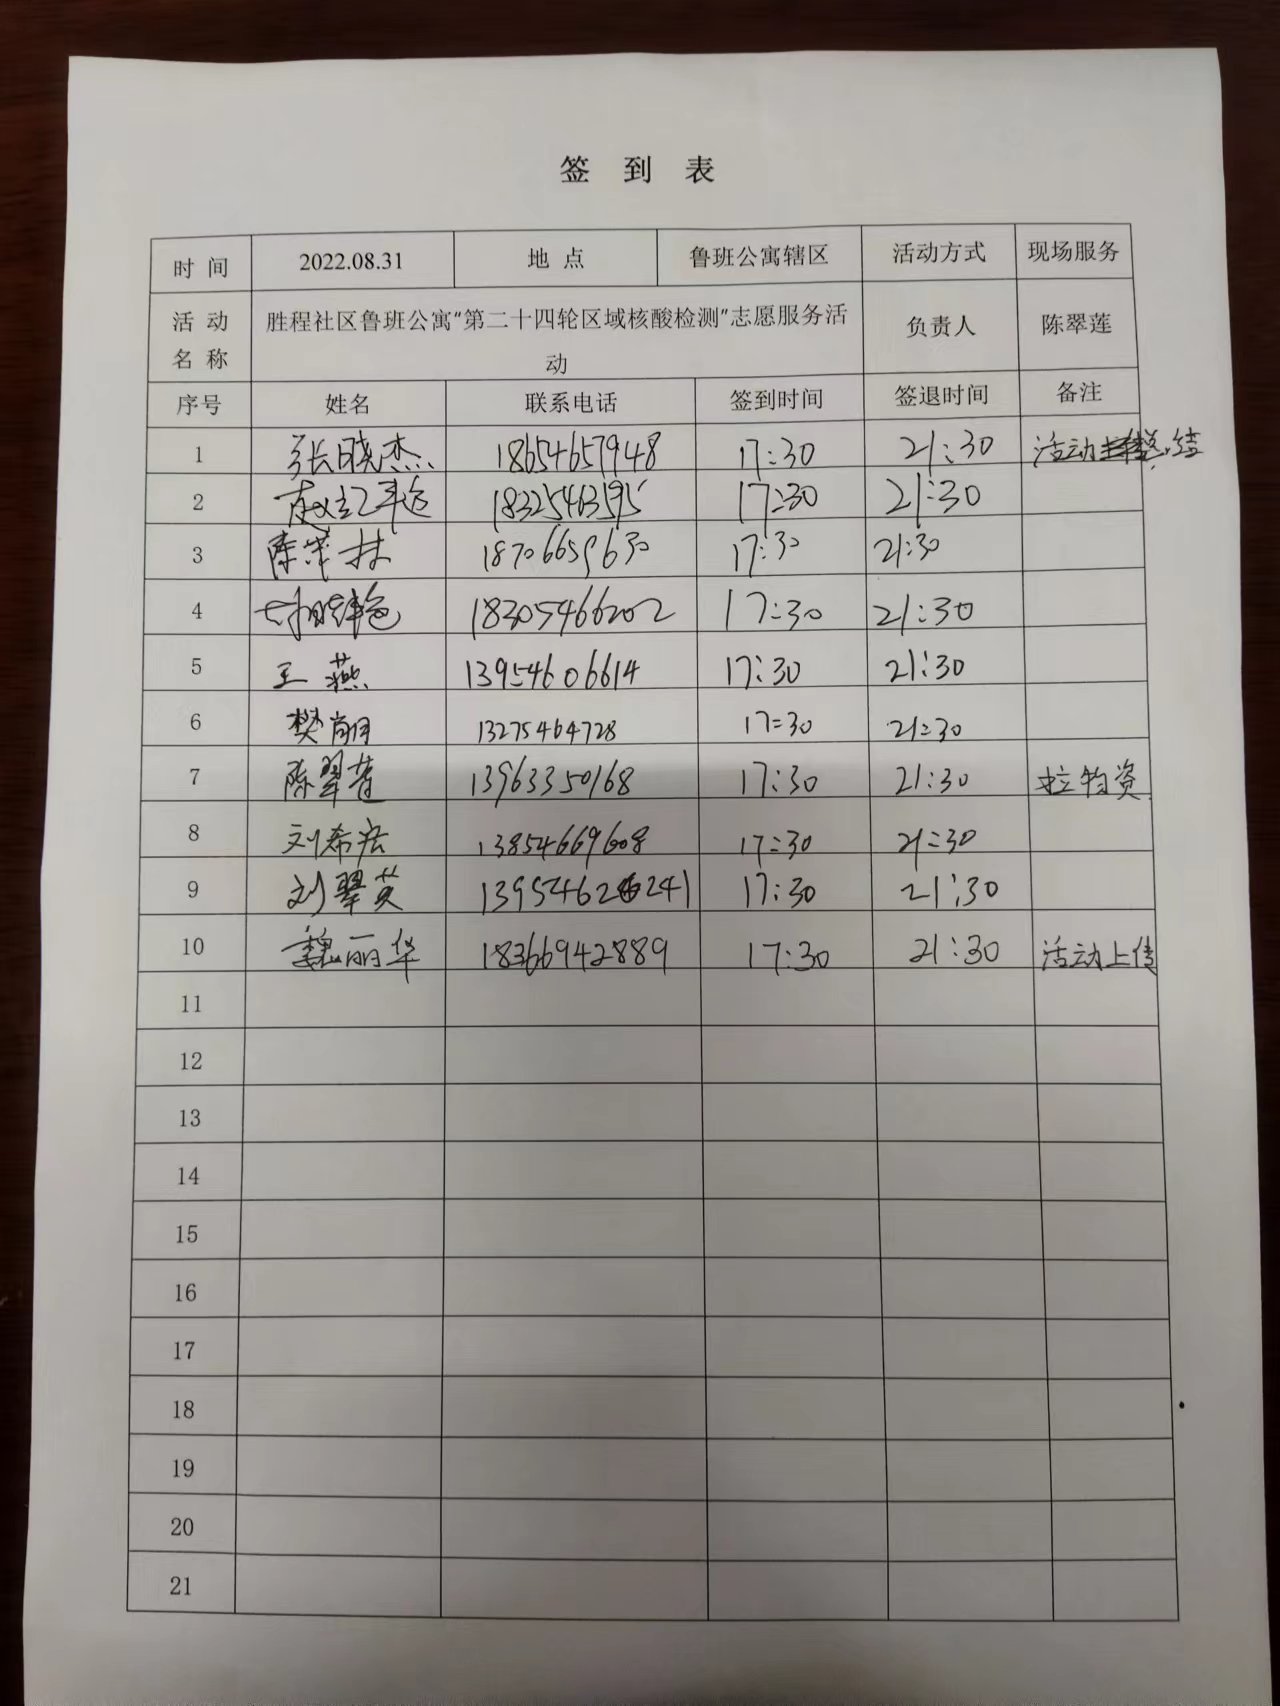 签 到 表
时 间 2022.08.31 地 点 鲁班公寓辖区 活动方式 现场服务
活 动 名 称 胜程社区鲁班公寓“第二十四轮区域核酸检测”志愿服务活动 负责人 陈翠莲
序号 姓名 联系电话 签到时间 签退时间 备注
1 张晓杰 18654657948 17:30 21:30 活动总结
2 18325463595 17:30 21:30
3 18706659630 17:30 21:30
4 18305466202 17:30 21:30
5 王燕 13954606614 17:30 21:30
6 樊 13275464728 17:30 21:30
7 陈翠莲 13963350168 17:30 21:30 拉物资
8 刘希宏 13854669608 17:30 21:30
9 刘翠英 13954626241 17:30 21:30
10 魏丽华 18366942889 17:30 21:30 活动上传
11
12
13
14
15
16
17
18
19
20
21